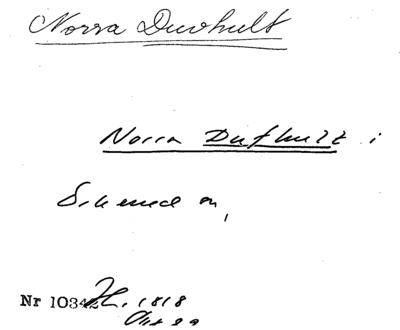 Norra Duvhult
Norra Dufhult i
Skened sn,
Nr 10342 1818